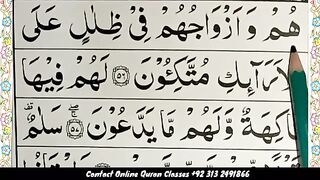 هُمْ وَ اَزْوَاجُهُمْ فِیْ ظِلٰلٍ عَلَی
لْاَرَآىِٕكِ مُتَّكِـُٔوْنَ ﴿۵۶﴾ لَهُمْ فِیْهَا
فَاكِهَةٌ وَّ لَهُمْ مَّا یَدَّعُوْنَ ﴿۵۷﴾ سَلٰمٌ
Contact Online Quran Classes +92 313 2491866